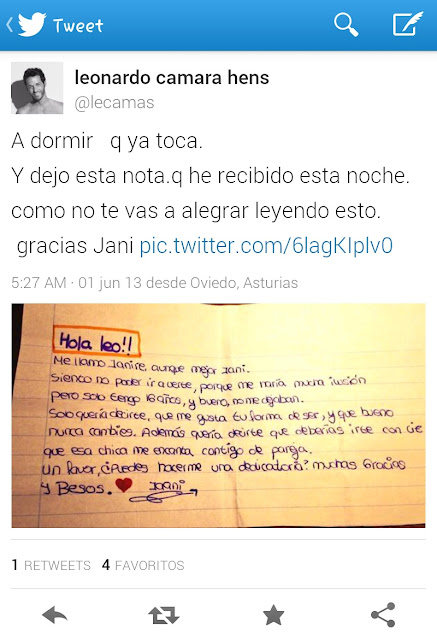 Tweet
leonardo camara hens
@lecamas
A dormir q ya toca.
Y dejo esta nota.q he recibido esta noche.
como no te vas a alegrar leyendo esto.
gracias Jani pic.twitter.com/6lagKIplv0
5:27 AM · 01 jun 13 desde Oviedo, Asturias
Hola leo!!
Me llamo Janire, aunque mejor Jani.
Siento no poder ir a verte, porque me haría mucha ilusión
pero solo tengo 16 años, y bueno, no me dejaban.
Solo quería decirte, que me gusta tu forma de ser, y que bueno
nunca cambies. Además quería decirte que deberías irte con
que esa chica me encanta contigo de pareja.
Un favor, ¿puedes hacerme una dedicatoria? muchas Gracias
y Besos. ❤ Jani
1 RETWEETS 4 FAVORITOS